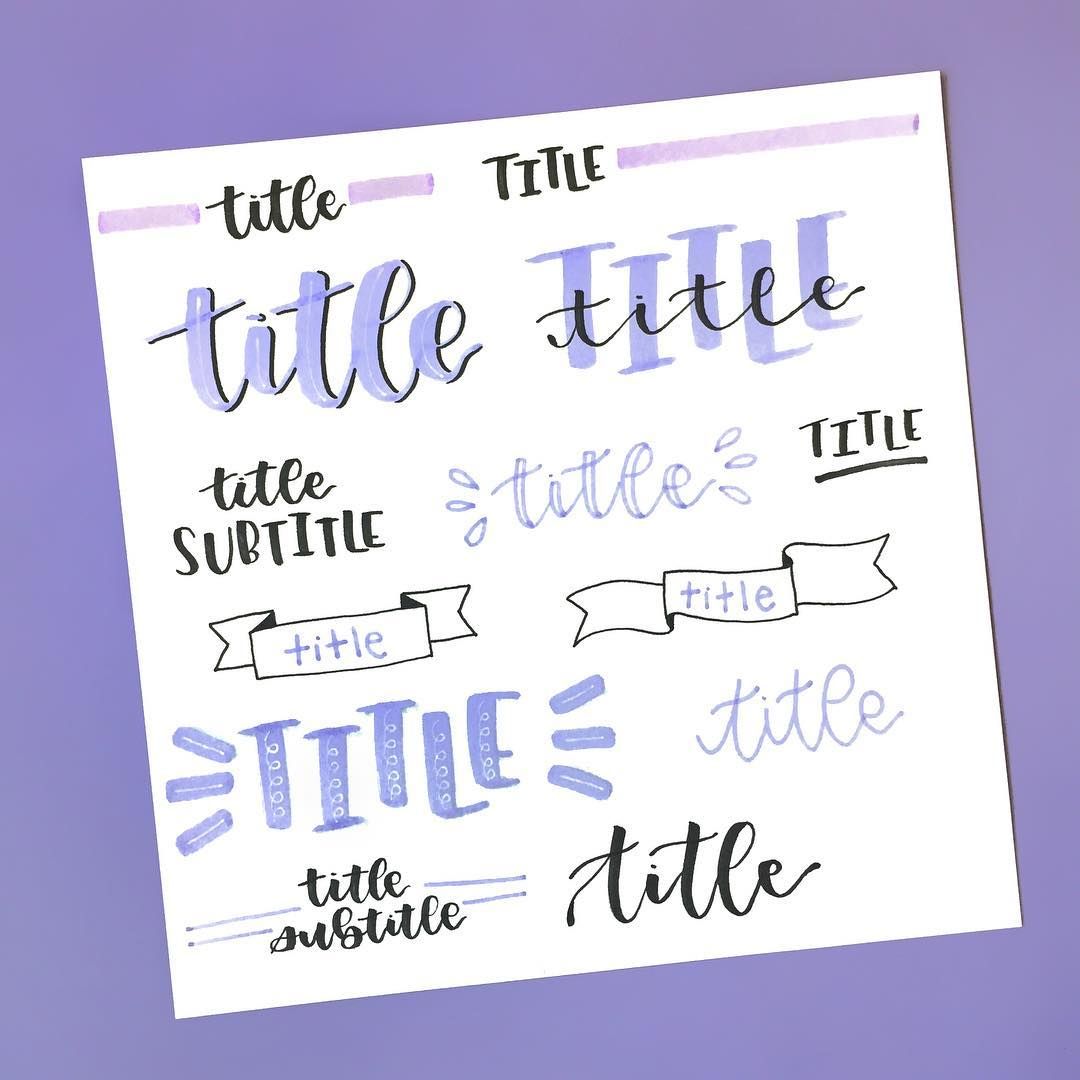 title TITLE
title TITLE title
title title TITLE
SUBTITLE
title title
TITLE title
title title
subtitle